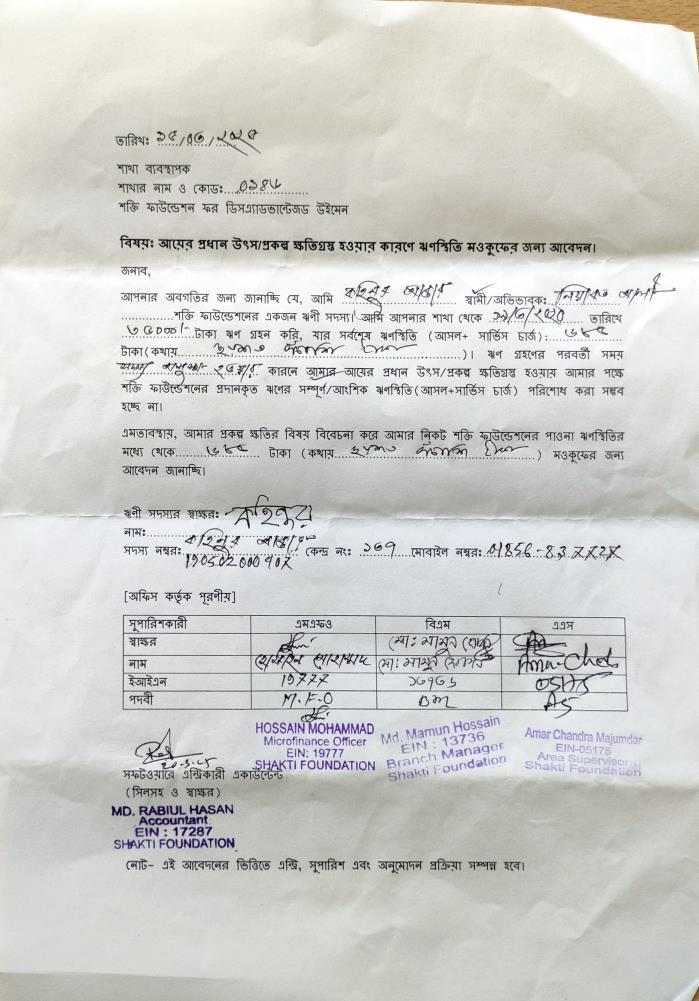 তারিখঃ ১৫/০৩/২০২৫
শাখা ব্যবস্থাপক
শাখার নাম ও কোডঃ....০১৪৬
শক্তি ফাউন্ডেশন ফর ডিসএ্যাডভান্টেজড উইমেন
বিষয়ঃ আয়ের প্রধান উৎস/প্রকল্প ক্ষতিগ্রস্ত হওয়ার কারণে ঋণস্থিতি মওকুফের জন্য আবেদন।
জনাব,
আপনার অবগতির জন্য জানাচ্ছি যে, আমি কহিনুর আক্তার স্বামী/অভিভাবক: লিয়াকত আলী
শক্তি ফাউন্ডেশনের একজন ঋণী সদস্য। আমি আপনার শাখা থেকে তারিখে
৩৫০০০/- টাকা ঋণ গ্রহন করি, যার সর্বশেষ ঋণস্থিতি (আসল+ সার্ভিস চার্জ): ৬৮৫
টাকা(কথায় ছয়শত পঁচাশি টাকা)। ঋণ গ্রহণের পরবর্তী সময়
কারনে আমার আয়ের প্রধান উৎস/প্রকল্প ক্ষতিগ্রস্ত হওয়ায় আমার পক্ষে
শক্তি ফাউন্ডেশনের প্রদানকৃত ঋণের সম্পূর্ণ/আংশিক ঋণস্থিতি(আসল+সার্ভিস চার্জ) পরিশোধ করা সম্ভব
হচ্ছে না।
এমতাবস্থায়, আমার প্রকল্প ক্ষতির বিষয় বিবেচনা করে আমার নিকট শক্তি ফাউন্ডেশনের পাওনা ঋণস্থিতির
মধ্যে থেকে ৬৮৫ টাকা (কথায় ছয়শত পঁচাশি টাকা) মওকুফের জন্য
আবেদন জানাচ্ছি।
ঋণী সদস্যর স্বাক্ষরঃ কহিনুর
নাম: কহিনুর আক্তার
সদস্য নম্বর: কেন্দ্র নং: ১৬৭ মোবাইল নম্বর:
[অফিস কর্তৃক পূরণীয়]
সুপারিশকারী এমএফও বিএম এএস
স্বাক্ষর মো: মামুন হোসেন
নাম হোসাইন মোহাম্মদ মো: মামুন হোসেন
ইআইএন 19777 ১৩৭৩৬ 05175
পদবী M.F.O BM AS
HOSSAIN MOHAMMAD
Microfinance Officer
EIN: 19777
SHAKTI FOUNDATION
Md. Mamun Hossain
EIN : 13736
Branch Manager
Shakti Foundation
Amar Chandra Majumdar
EIN-05175
Area Supervisor
Shakti Foundation
20-3-25
সফটওয়্যারে এন্ট্রিকারী একাউন্টেন্ট
(সিলসহ ও স্বাক্ষর)
MD. RABIUL HASAN
Accountant
EIN : 17287
SHAKTI FOUNDATION
নোট- এই আবেদনের ভিত্তিতে এন্ট্রি, সুপারিশ এবং অনুমোদন প্রক্রিয়া সম্পন্ন হবে।